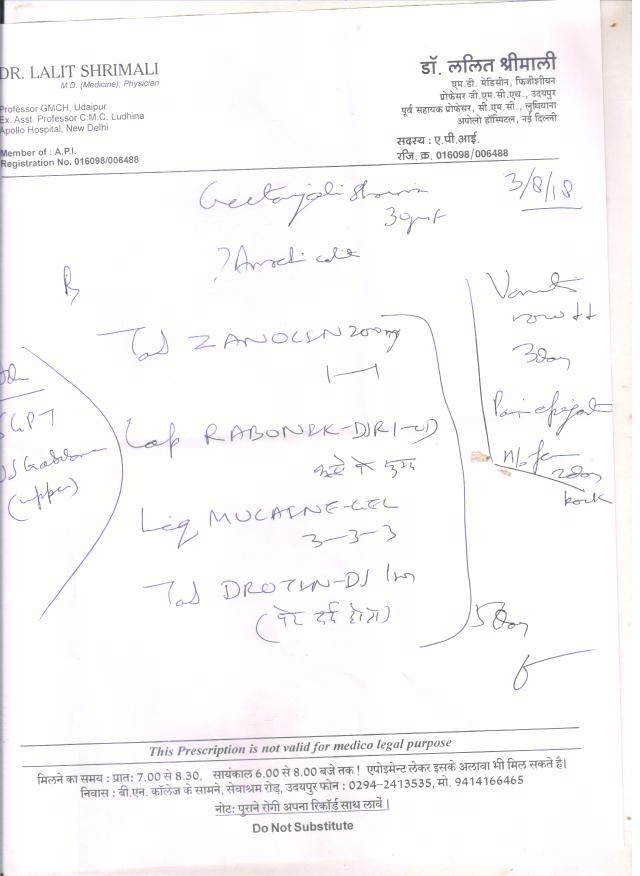 DR. LALIT SHRIMALI
M.D. (Medicine), Physician
Professor GMCH, Udaipur
Ex. Asst. Professor C.M.C. Ludhina
Apollo Hospital, New Delhi
Member of : A.P.I.
Registration No. 016098/006488
डॉ. ललित श्रीमाली
एम.डी. मेडिसीन, फिजीशीयन
प्रोफेसर जी.एम.सी.एच., उदयपुर
पूर्व सहायक प्रोफेसर, सी.एम.सी., लुधियाना
अपोलो हॉस्पिटल, नई दिल्ली
सदस्य : ए.पी.आई.
रजि. क्र. 016098/006488
3/8/18
Geetanjali
Tab ZANOCIN 200mg
1—1
Cap RABONIK-DSR 1-OD
Liq MUCAINE-GEL
3-3-3
Tab DROTIN-DS
(पेट दर्द होने)
3day
2day
5day
SGPT
(upper)
This Prescription is not valid for medico legal purpose
मिलने का समय : प्रातः 7.00 से 8.30, सायंकाल 6.00 से 8.00 बजे तक ! एपोइमेन्ट लेकर इसके अलावा भी मिल सकते है।
निवास : बी.एन. कॉलेज के सामने, सेवाश्रम रोड़, उदयपुर फोन : 0294-2413535, मो. 9414166465
नोट: पुराने रोगी अपना रिकॉर्ड साथ लावें।
Do Not Substitute